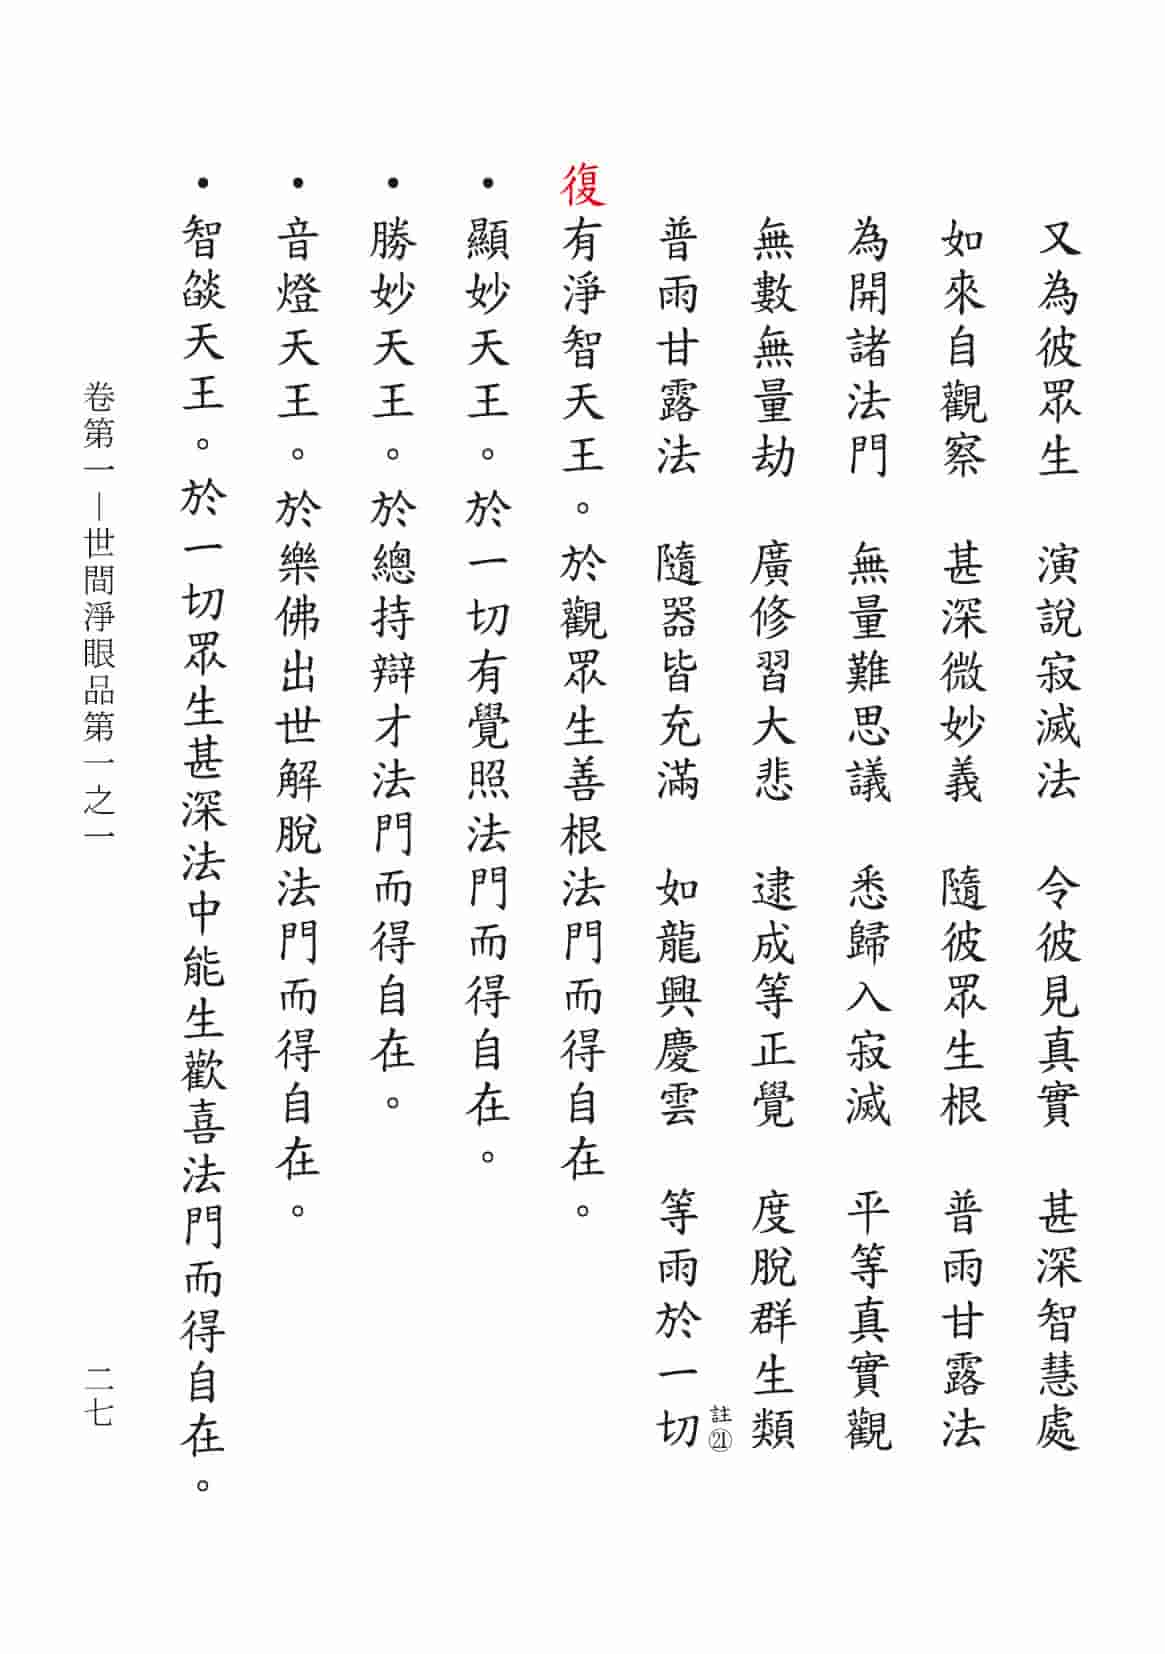 又為彼眾生　演說寂滅法　令彼見真實　甚深智慧處
如來自觀察　甚深微妙義　隨彼眾生根　普雨甘露法
為開諸法門　無量難思議　悉歸入寂滅　平等真實觀
無數無量劫　廣修習大悲　逮成等正覺　度脫群生類
普雨甘露法　隨器皆充滿　如龍興慶雲　等雨於一切註㉑
復有淨智天王。於觀眾生善根法門而得自在。
•顯妙天王。於一切有覺照法門而得自在。
•勝妙天王。於總持辯才法門而得自在。
•音燈天王。於樂佛出世解脫法門而得自在。
•智燄天王。於一切眾生甚深法中能生歡喜法門而得自在。
卷第一｜世間淨眼品第一之一
二七